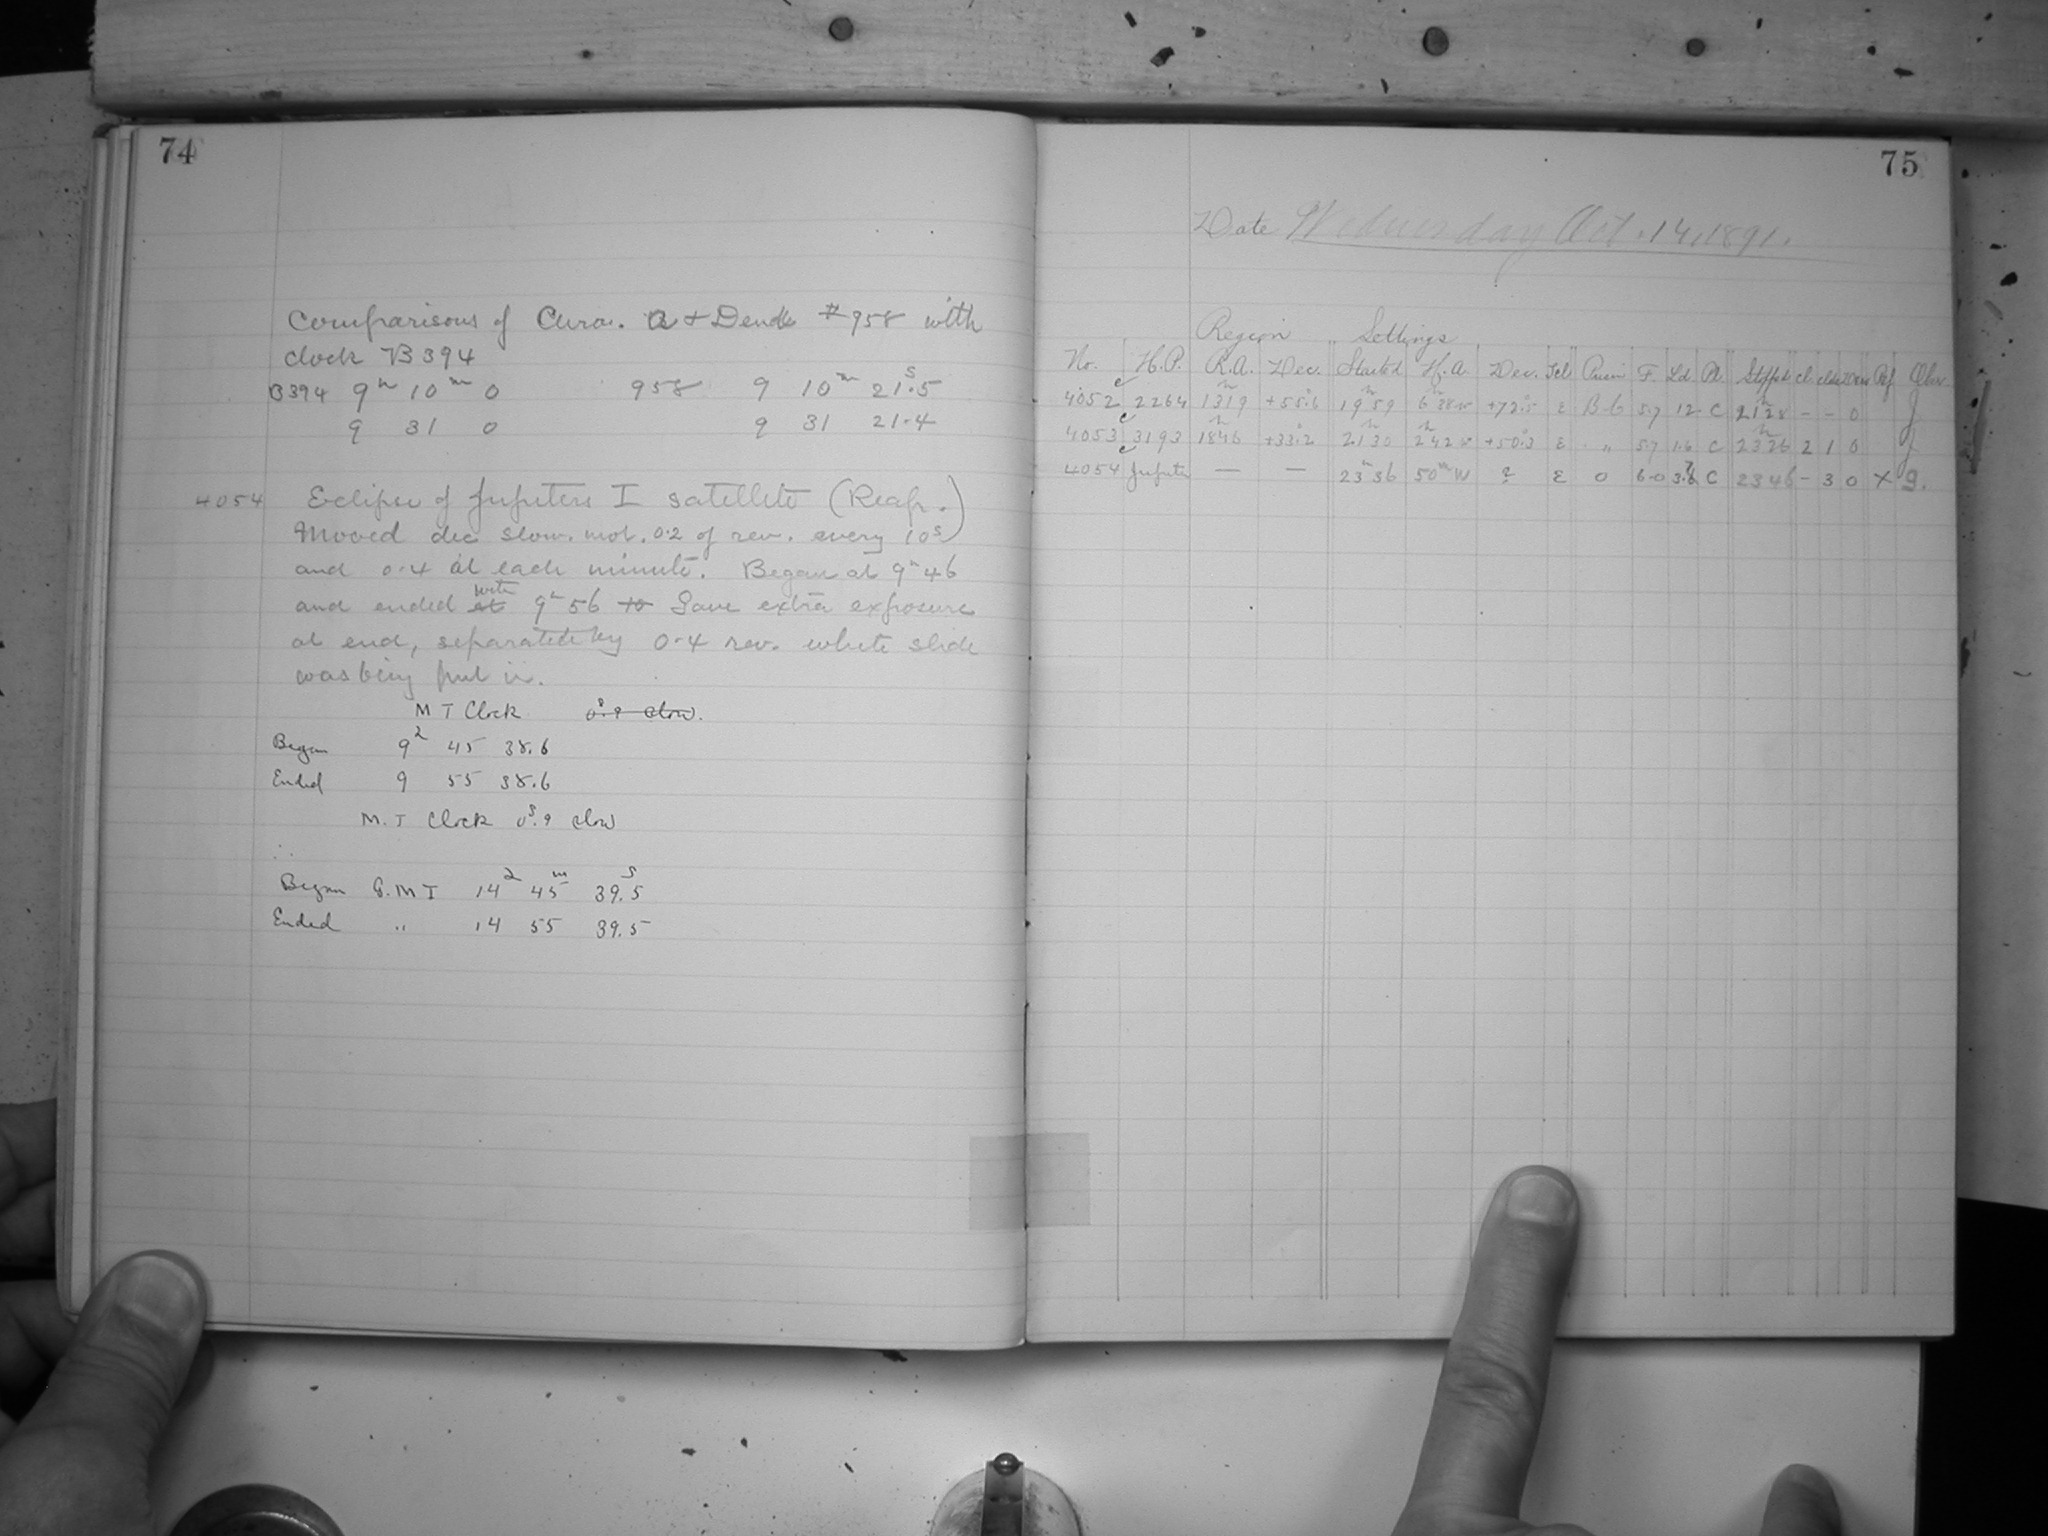 74
Comparisons of Chro. & Dent #958 with
clock B394
B394 9h 10m 0 958 9 10m 21s.5
9 31 0 9 31 21.4
4054 Eclipse of Jupiters I satellite (Reap.)
Moved dec slow. mot. 0.2 of rev. every 10s
and 0.4 at each minute. Began at 9h 46
and ended with 9h 56 Gave extra exposure
at end, separated by 0.4 rev. while slide
was being put in.
M T Clock 0s.9 slow.
Began 9h 45 38.6
Ended 9 55 38.6
M.T Clock 0s.9 slow
∴
Began G.M T 14h 45m 39s.5
Ended " 14 55 39.5
75
Date Wednesday Oct. 14, 1891.
Region Settings
No. H.P. R.A. Dec. Started H.A. Dec. Tel Prism F. Ld. Pl. Stopped Cl. Ref Obsr.
4052 c 2264 1319 +55.6 19h59 6h38w +72.5 E B-6 5.7 12. C 21h28 - - 0 J
4053 c 3193 1846 +33.2 21h30 2h42w +50.3 E " 5.7 1.6 C 23h26 2 1 0 J
4054 c Jupiter — — 23h36 50m W ? E 0 6.0 C 2346 - 3 0 X g.